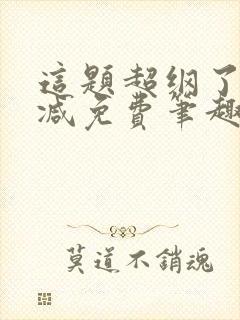 這題超纲了
减免費筆趣
莫道不銷魂